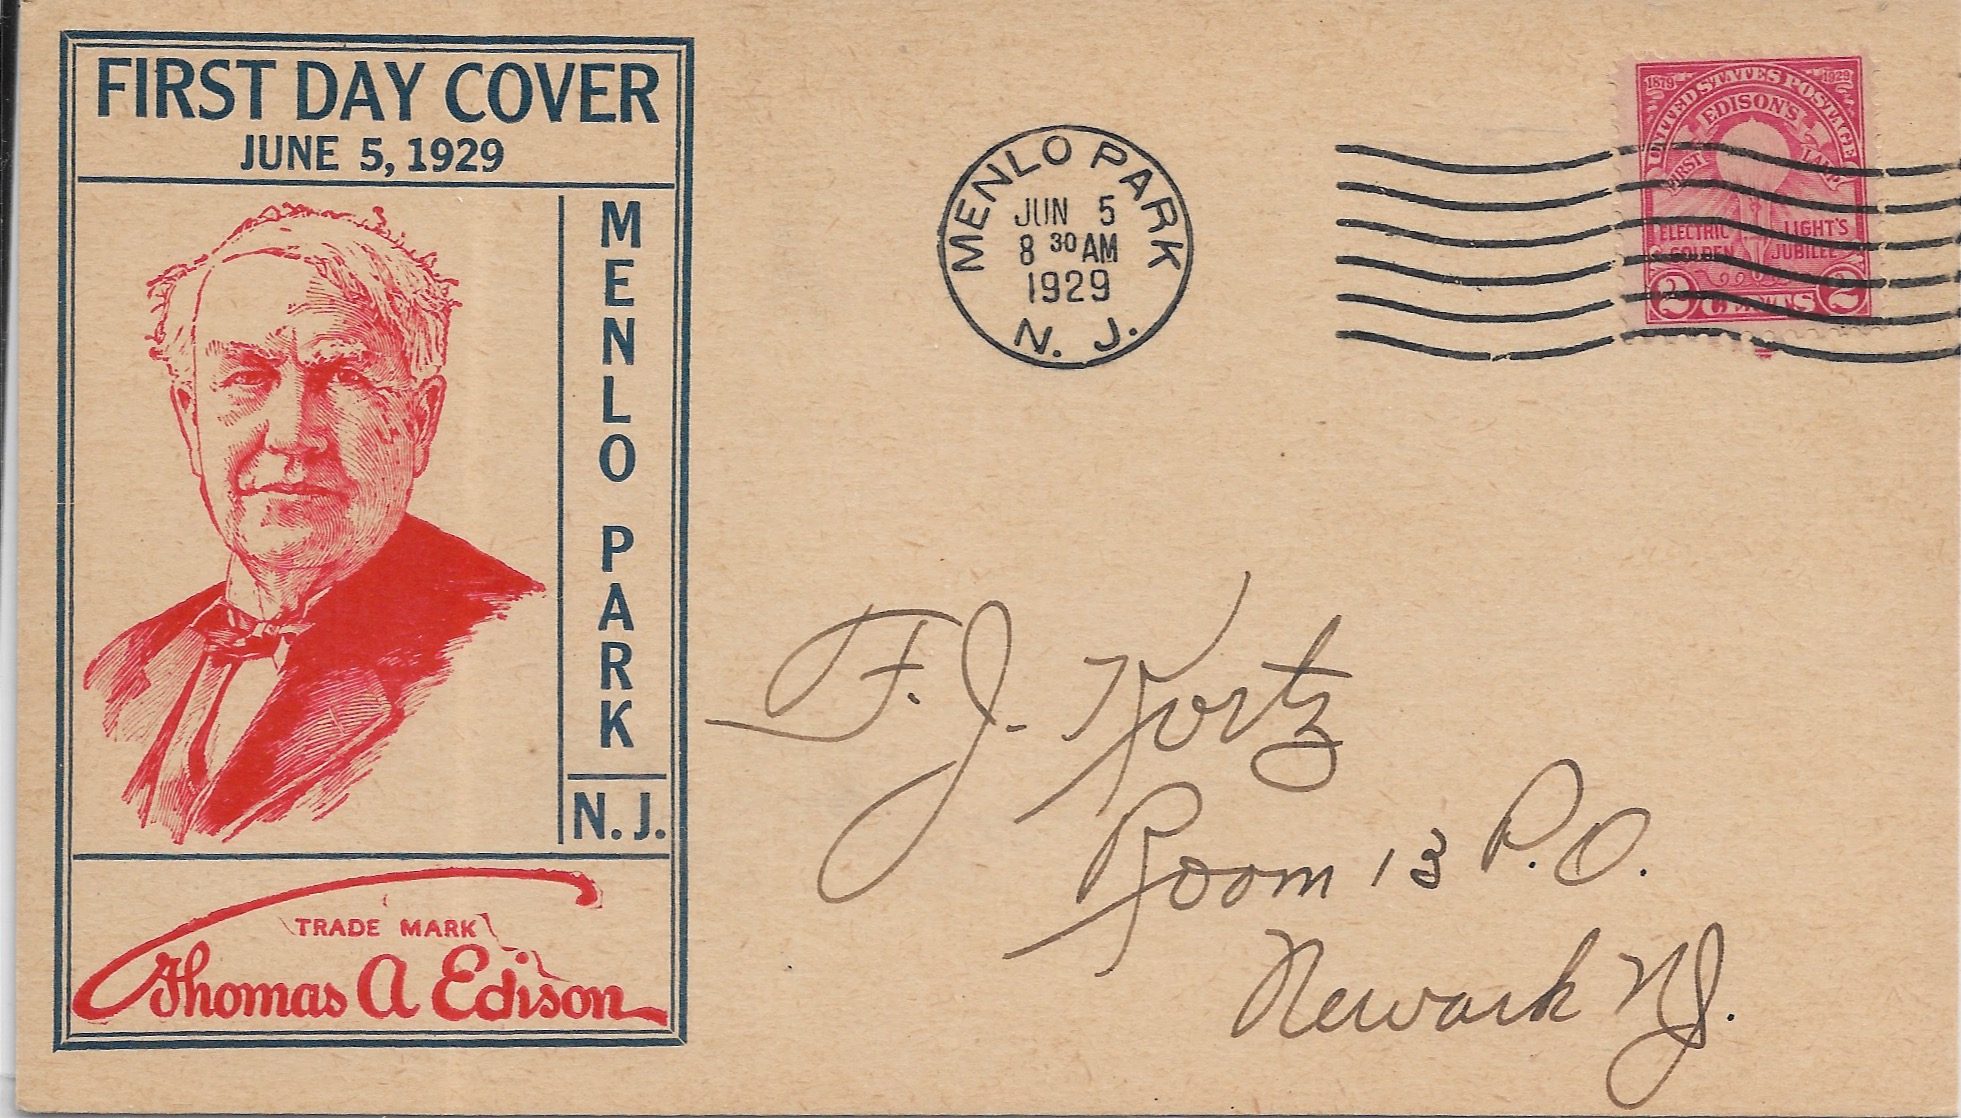 FIRST DAY COVER
JUNE 5, 1929
MENLO PARK
N. J.
TRADE MARK
Thomas A Edison
MENLO PARK
JUN 5
8 30 AM
1929
N. J.
1879 1929
UNITED STATES POSTAGE
EDISON'S
FIRST LAMP
ELECTRIC LIGHT'S
GOLDEN JUBILEE
2 CENTS 2
F. J. Kortz
Room 13 P.O.
Newark NJ.